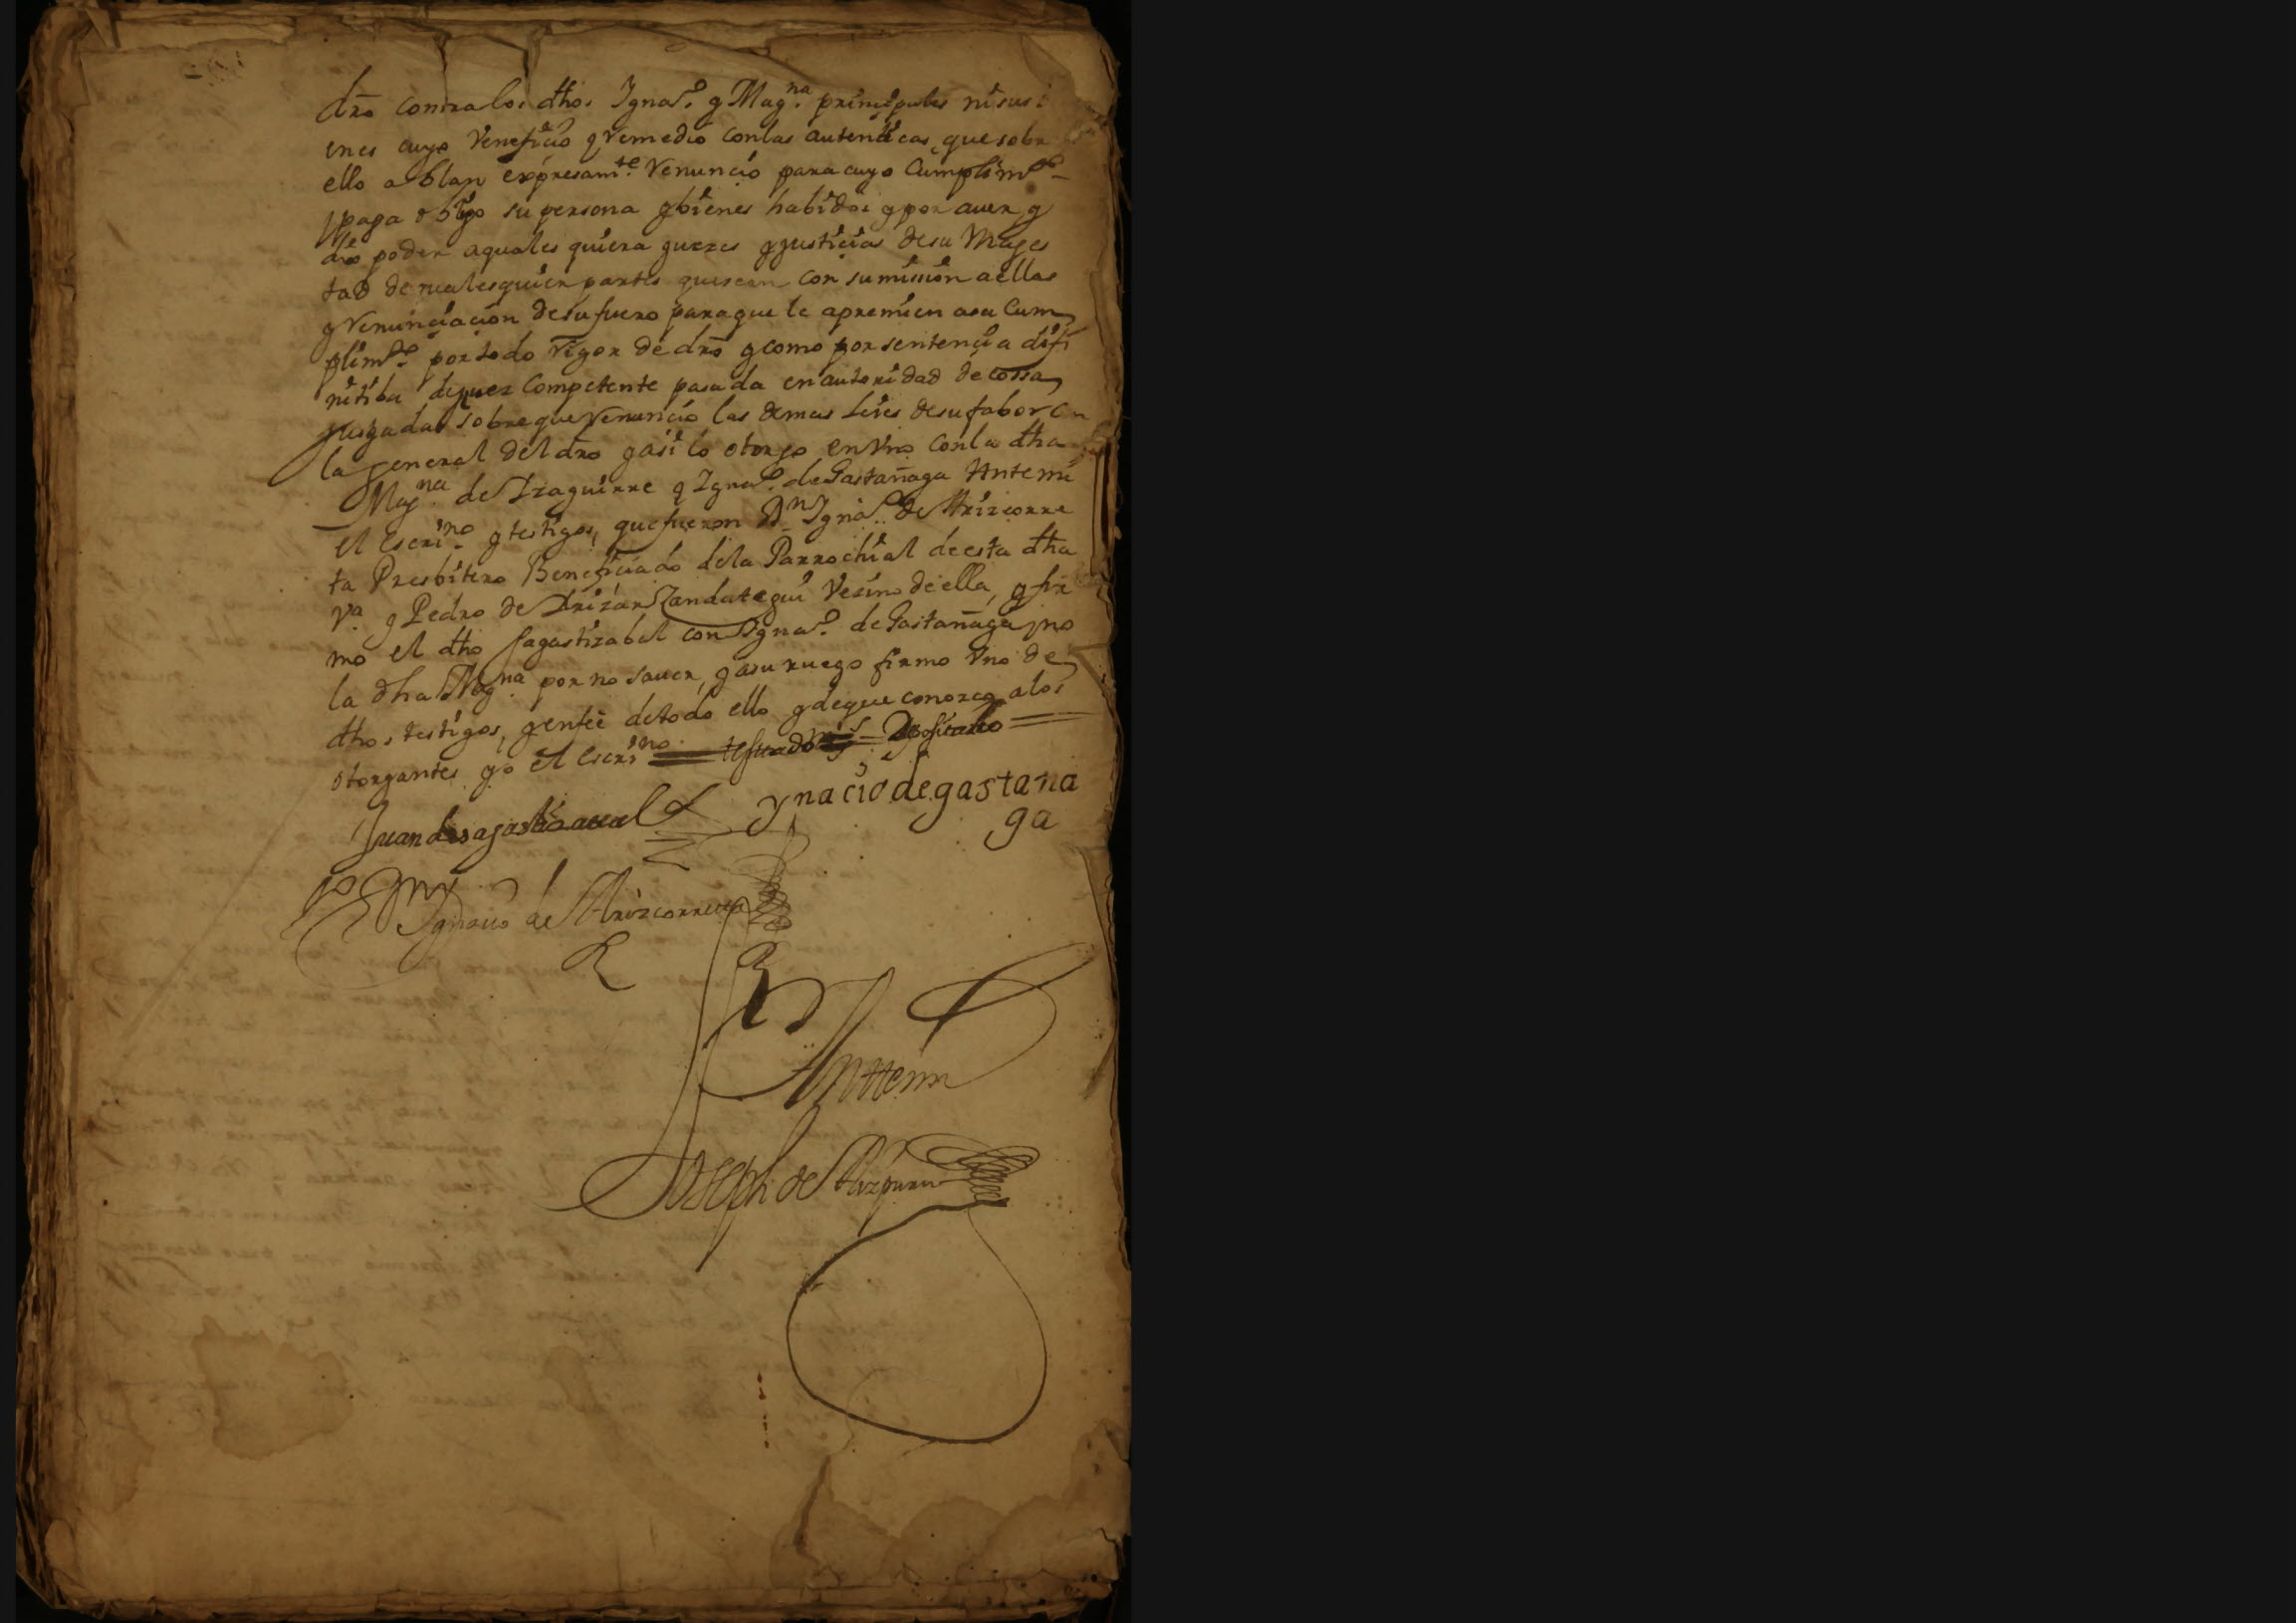 dro contra los dhos Ignaº y Magna principales ni sus i
enes cuyo veneficio y remedio con las autenticas que sobre
ello ablan expresamte renuncio para cuyo cumplimto
y paga obligo su persona y bienes habidos y por auer y
dio poder a quales quiera juezes y justicias de su Mages
tad de cualesquier partes que sean con sumission a ellas
y renunciacion de su fuero para que le apremien a su cum
plimto por todo rigor de dro y como por sentencia difi
nitiba de juez competente pasada en autoridad de cossa
jusgada sobre que renuncio las demas leies de su fabor con
la general del dro y asi lo otorgo en vno con la dha
Magna de Izaguirre y Ignaº de Gastañaga Ante mi
el escrino y testigos, que fueron Dn Ignaº de Arizcorre
ta Presbitero Beneficiado de la Parrochial de esta dha
va y Pedro de Irizar Zandategui vesino de ella, y fir
mo el dho sagastizabal con Ignaº de Gastañaga, y no
la dha Magna por no sauer, y a su ruego firmo vno de
dhos testigos, y en feè de todo ello y de que conozco a los
otorgantes yo el escrino testado
Juan de sagastizaual ynacio de gastaña
ga
Ignacio de Arizcorreta
Antemi
Joseph de Aizpuru